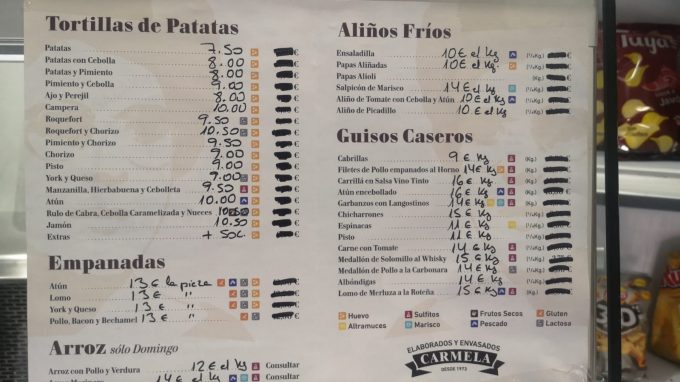 Tortillas de Patatas
Patatas 7.50 €
Patatas con Cebolla 8.00 €
Patatas y Pimiento 8.00 €
Pimiento y Cebolla 9.00 €
Ajo y Perejil 8.00 €
Campera 10.00 €
Roquefort 9.50 €
Roquefort y Chorizo 10.50 €
Pimiento y Chorizo €
Chorizo 9.00 €
Pisto 9.00 €
York y Queso 9.00 €
Manzanilla, Hierbabuena y Cebolleta 9.50 €
Atún 10.00 €
Rulo de Cabra, Cebolla Caramelizada y Nueces 10.50 €
Jamón 10.50 €
Extras + 50c. €
Empanadas
Atún 13€ la pieza €
Lomo 13€ " €
York y Queso 13€ " €
Pollo, Bacon y Bechamel 13€ " €
Arroz sólo Domingo
Arroz con Pollo y Verdura 12€ el kg Consultar
14€ el kg Consultar
Aliños Fríos
Ensaladilla 10€ el kg (½Kg.) €
Papas Aliñadas 10€ el kg (½Kg.) €
Papas Alioli (Kg.) €
Salpicón de Marisco 14€ el kg (½Kg.) €
Aliño de Tomate con Cebolla y Atún 10€ el kg (½Kg.) €
Aliño de Picadillo 10€ el kg (½Kg.) €
Guisos Caseros
Cabrillas 9€ kg (Kg.) €
Filetes de Pollo empanados al Horno 14€ kg (Kg.) €
Carrillá en Salsa Vino Tinto 16€ kg (½Kg.) €
Atún encebollado 16€ kg (½Kg.) €
Garbanzos con Langostinos 14€ kg (Kg.) €
Chicharrones 15€ kg (½Kg.) €
Espinacas 11€ kg (½Kg.) €
Pisto 11€ kg (½Kg.) €
Carne con Tomate 14€ kg (½Kg.) €
Medallón de Solomillo al Whisky 15€ kg (½Kg.)
Medallón de Pollo a la Carbonara 14€ kg (½Kg.) €
Albóndigas 14€ kg (½Kg.) €
Lomo de Merluza a la Roteña 15€ kg (½Kg.) €
Huevo Sulfitos Frutos Secos Gluten
Altramuces Marisco Pescado Lactosa
ELABORADOS Y ENVASADOS
CARMELA
DESDE 1973